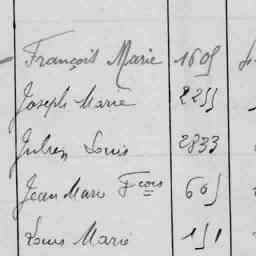 François Marie 1605
Joseph Marie 2255
Julien Louis 2833
Jean Marie Fcois 605
Louis Marie 151